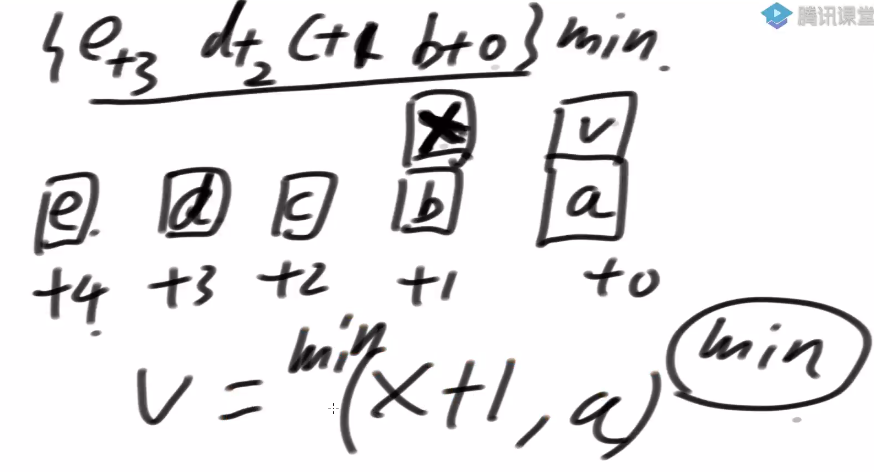 腾讯课堂
{e+3 d+2 c+1 b+0} min.
x v
e d c b a
+4 +3 +2 +1 +0
v = min(x+1, a) min